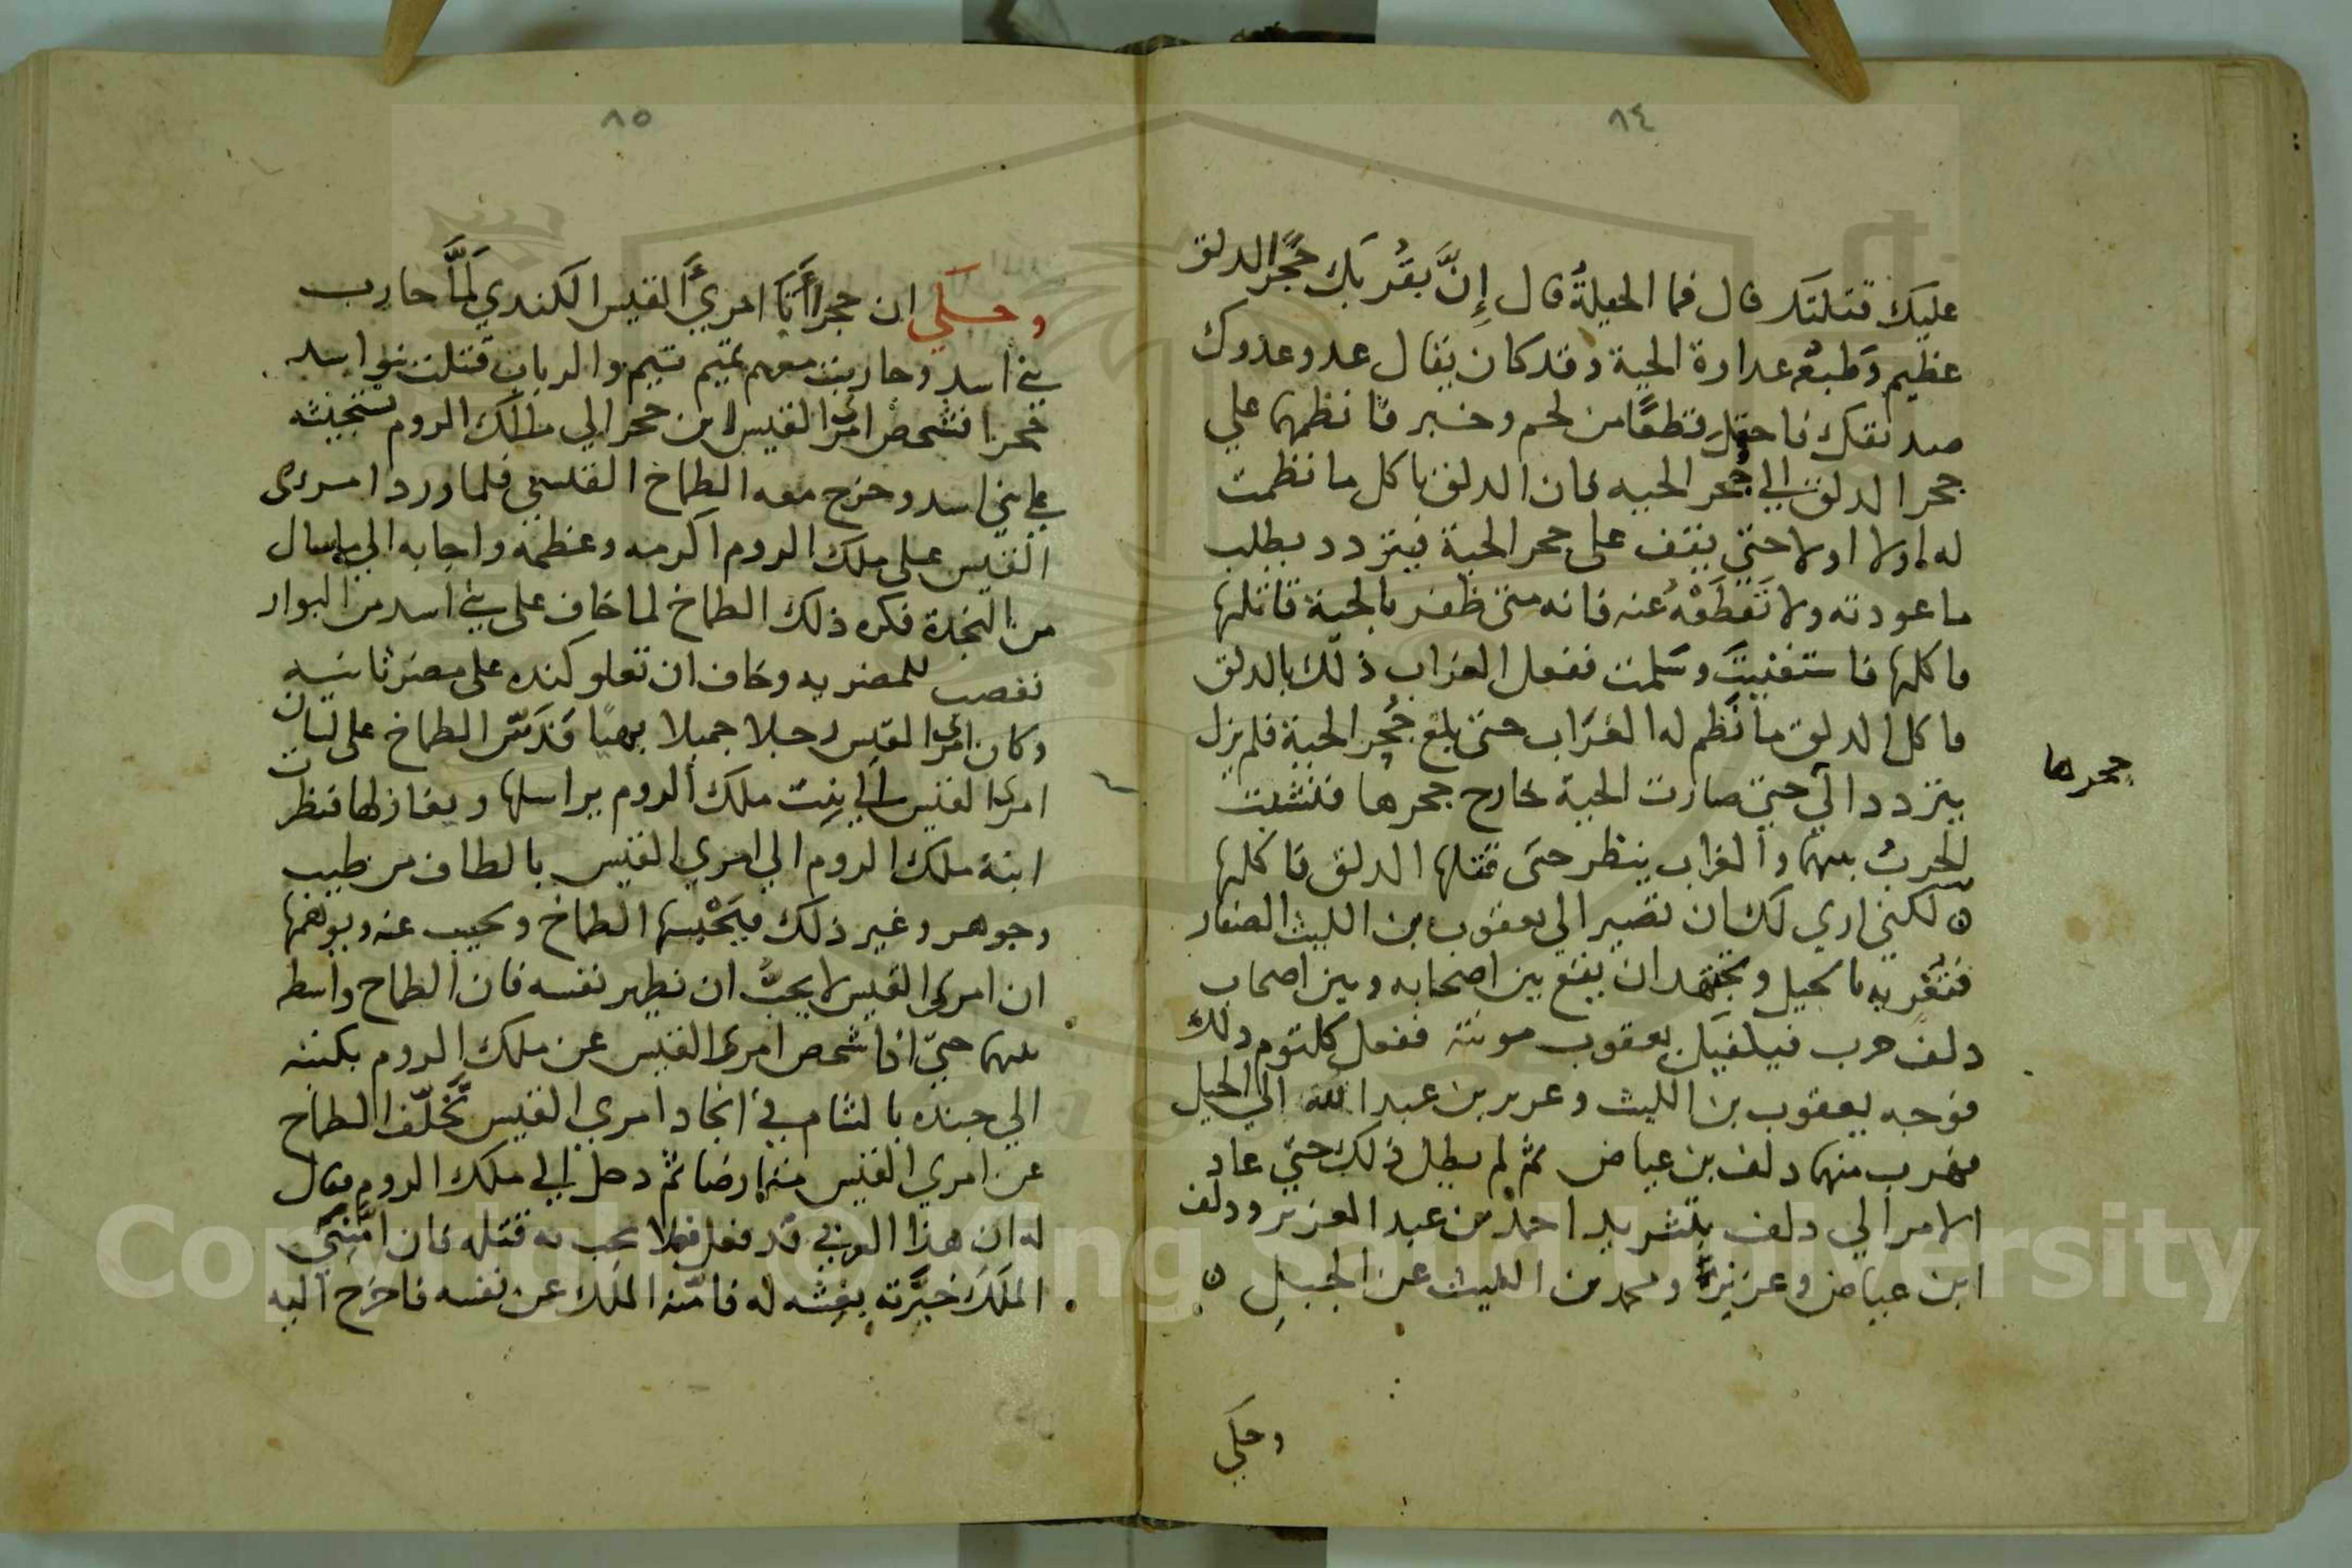 ٨٤
عليك قتلتك قال فما الحيلةُ قال إِنَّ بقُربك جُحرًا لدلق
عظيم وَطبعُه عداوة الحية وقد كان يقال عدو عدوك
صديقك فاحتمل قطعًا من لحم وخبز فانظمها علي
جحر الدلق الي جحر الحيه فان الدلق ياكل ما نظمت
له اولا اولا حتى يقف على جحر الحية فيتردد بطلب
ما عودته ولا تَقطَعْهُ عنه فانه متى ظفر بالحية قاتلها
فاكلها فاستغنيتَ وسَلمت ففعل الغراب ذلك بالدلق
فاكل الدلق ما نَظم له الغُرَاب حتى بلغ جُحر الحية فلم يزل
يتردد الي حتى صارت الحية خارج جحرها فنشبت
جحرها
الحربُ بينهما والغراب ينظر حتى قتلها الدلق فاكلها
ه لكني اري لك ان تصير الي يعقوب بن الليث الصفار
فتُغريه بالجبل وتجتهد ان يقع بين اصحابه وبين اصحاب
دلف حرب فيكفيك يعقوب مونته ففعل كلثوم ذلك
فوجه يعقوب بن الليث وعزيز بن عبد الله الي الجبل
فهرب منهما دلف بن عياض ثم لم يطل ذلك حتي عاد
الامر الي دلف بتشريد احمد بن عبد العزيز ودلف
ابن عياض وعزيزًا ومحمد بن الليث عن الجبل ه
وحكي
٨٥
وحكي ان حجرا أَبَا امريِ القيس الكندي لَمَّا حارب
بني اسد وحاربت معهم تميم تيم والرباب قتلت بنو اسد
حُجرا فشخص امرئ القيس بن حجر الي ملك الروم يستنجيشه
علي بني اسد وخرج معه الطماخ القليني فلما ورد امرئ
القيس على ملك الروم اكرمه وعظمه واجابه الي ما سال
من النجدة فكره ذلك الطماخ لما خاف على بني اسد من البوار
تعصب للمضريه وخاف ان تعلو كنده على مضر ثانيه
وكان امرئ القيس رجلا جميلا بهيًا فَدَسّ الطماخ على لسان
امرئ القيس الي بِنت ملك الروم يراسلها ويغازلها فنظرت
ابنة ملك الروم الي امري القيس بالطاف من طيب
وجوهر وغير ذلك فيَحْبسها الطماخ ويجيب عنه ويوهمها
ان امرئ القيس لا يحبُّ ان يظهر نفسه فان الطماح واسط
بينهما حتيّ اذا شخص امرئ القيس عن ملك الروم بكتبه
الي جنده بالشام في انجاد امري القيس تَخَلّف الطماح
عن امري القيس متمارضا ثم دخل الي ملك الروم فقال
له ان هذا العربي قد فعل فعلا يجب به قتله فان امّنني
الملَك خبَّرته بغشه له فامّنه الملك عن نفسه فاخرج اليه